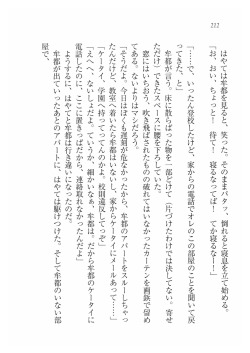 212
はやては牟都を見ると、笑った。そのままバタッ、倒れると寝息を立て始める。
「お、おい、ちょっと！　待て！　寝るなってば！　てか寝るなー！」
「……で、いったん登校したけど、家からの電話でオレのこの部屋のことを聞いて戻
ってきた、と」
牟都が言う。床に散らばった物を一部どけて（片づけたわけでは決してない。寄せ
ただけ）できたスペースに腰を下ろしていた。
窓にはいちおう、吹き飛ばされたものの破れてはいなかったカーテンを画鋲で留め
てある。ないよりはマシだろう。
「そうだよ。今日はぼくも遅刻が危なかったから、牟都のアパートをスルーしちゃっ
たんだけど、教室へ着いても牟都はいない。家からケータイにメールあってー……」
「ケータイ、学園へ持ってってんのかよ。校則違反してっぞ」
「えへへ、ないしょだよ。ていうか、細かいなぁ、牟都は。だから牟都のケータイに
電話したのに、ここに置きっぱだから、連絡取れなかったんだよ」
ようするに、はやてと牟都は行き違いになったのだ。
牟都が出ていったあとのアパートに、はやては駆けつけた。そして牟都のいない部
屋で、